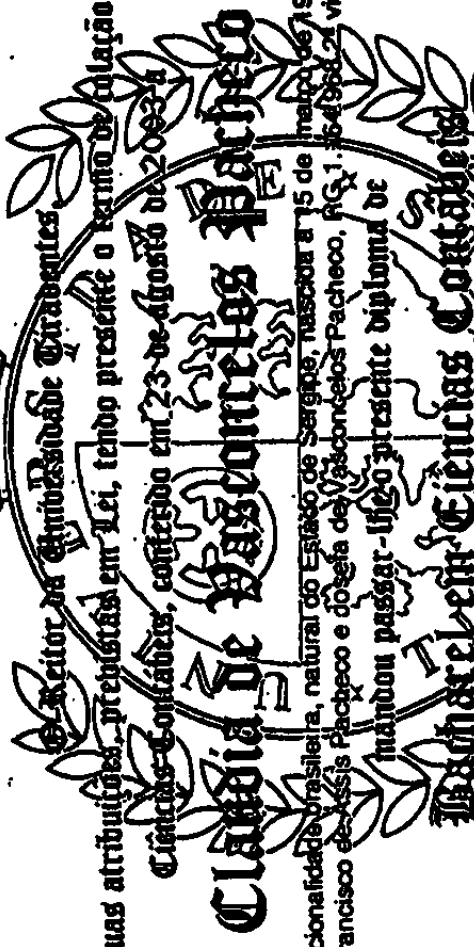 O Reitor da Universidade Tiradentes,
uas atribuições, previstas em Lei, tendo presente o termo de colação
Ciências Contábeis, conferido em 23 de agosto de 2003 a
Claudia de Vasconcelos Pacheco
cionalidade brasileira, natural do Estado de Sergipe, nascida a 15 de março de 19
rancisco de Assis Pacheco e Josefa de Vasconcelos Pacheco, RG 2ª vi
mandou passar-lhe o presente diploma de
Bacharel em Ciências Contábeis